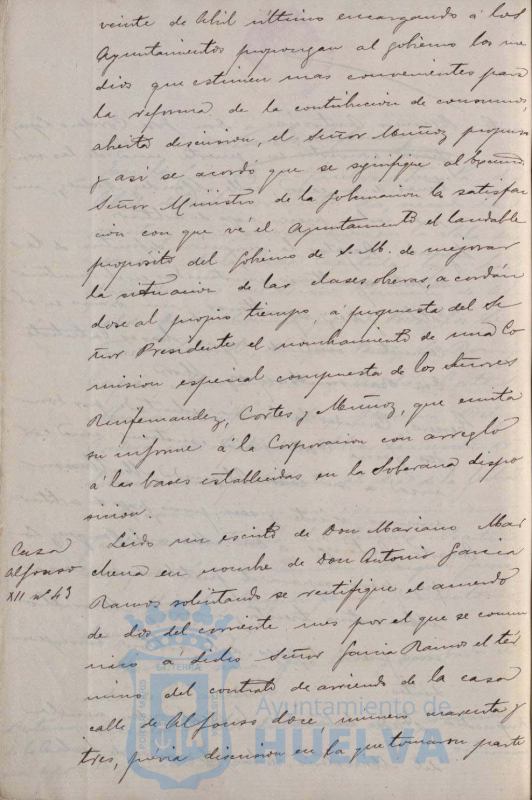 veinte de Abril último encargando á los
Ayuntamientos propongan al Gobierno los me
dios que estimen mas convenientes para
la reforma de la contribucion de consumos,
abierta discusion, el Señor Muñoz propuso
y asi se acordó que se signifique al Excmo.
Señor Ministro de la Gobernacion la satisfac
cion con que vé el Ayuntamiento el laudable
proposito del Gobierno de S. M. de mejorar
la situacion de las clases obreras, acordán
dose al propio tiempo, á propuesta del Se
ñor Presidente el nombramiento de una Co
mision especial compuesta de los Señores
Ruifernandez, Cortes y Muñoz, que emita
su informe á la Corporacion con arreglo
á las bases establecidas en la Soberana dispo
sicion.
Casa
Alfonso
XII nº 43
Leido un escrito de Don Mariano Mar
chena en nombre de Don Antonio Garcia
Ramos solicitando se rectifique el acuerdo
de dos del corriente mes por el que se comu
nico á dicho Señor Garcia Ramos el tér
mino del contrato de arriendo de la casa
calle de Alfonso doce numero cuarenta y
tres, prévia discusion en la que tomaron parte
Ayuntamiento de
HUELVA